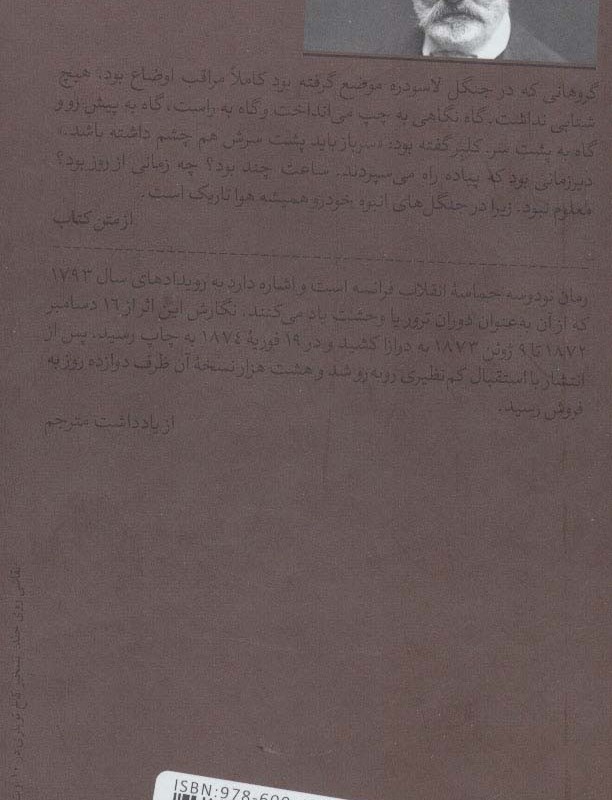 گروهانی که در جنگل لاسودره موضع گرفته بود کاملاً مراقب اوضاع بود. هیچ
شتابی نداشت. گاه نگاهی به چپ می‌انداخت و گاه به راست، گاه به پیش رو و
گاه به پشت سر. کلبر گفته بود: «سرباز باید پشت سرش هم چشم داشته باشد.»
دیرزمانی بود که پیاده راه می‌سپردند. ساعت چند بود؟ چه زمانی از روز بود؟
معلوم نبود. زیرا در جنگل‌های انبوه خودرو همیشه هوا تاریک است.
از متن کتاب
رمان نودوسه حماسهٔ انقلاب فرانسه است و اشاره دارد به رویدادهای سال ۱۷۹۳
که از آن به‌عنوان دوران ترور یا وحشت یاد می‌کنند. نگارش این اثر از ۱۶ دسامبر
۱۸۷۲ تا ۹ ژوئن ۱۸۷۳ به درازا کشید و در ۱۹ فوریهٔ ۱۸۷۴ به چاپ رسید. پس از
انتشار با استقبال کم‌نظیری روبه‌رو شد و هشت هزار نسخهٔ آن ظرف دوازده روز به
فروش رسید.
از یادداشت مترجم
نقاشی روی جلد:
ISBN:978-600